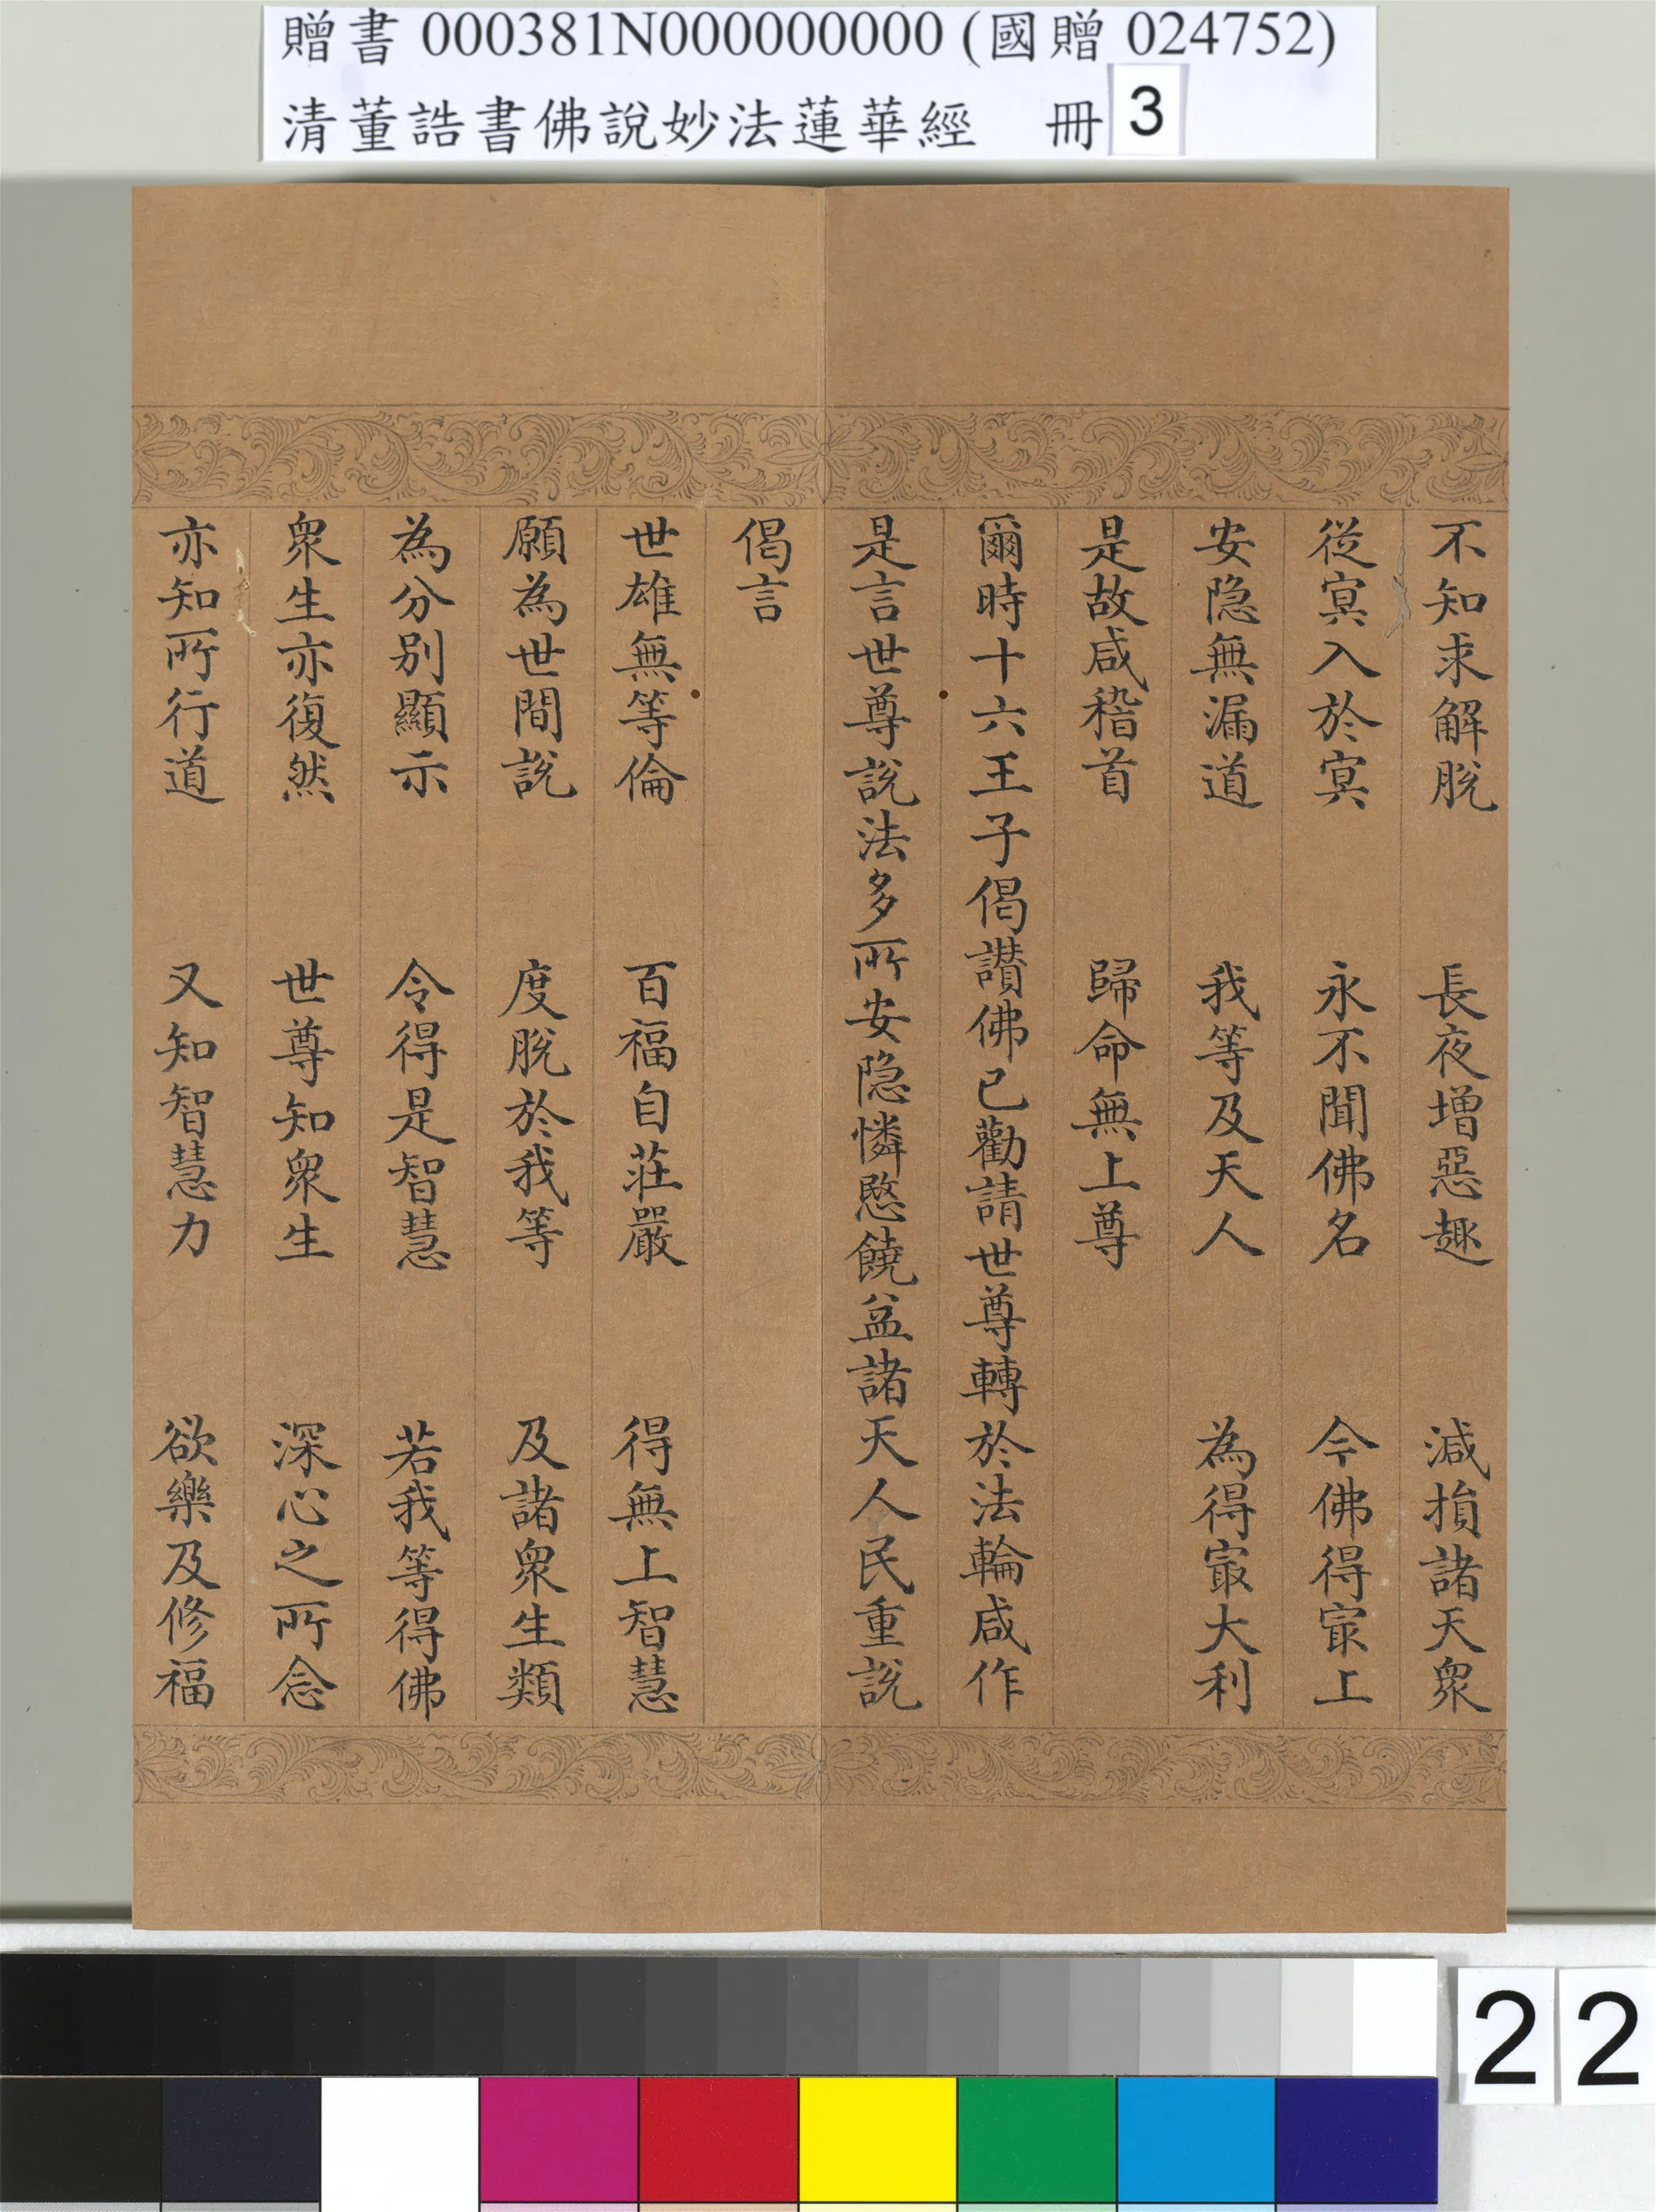 贈書 000381N000000000 (國贈 024752)
清董誥書佛說妙法蓮華經 冊 3
不知求解脫 長夜增惡趣 減損諸天衆
從冥入於冥 永不聞佛名 今佛得冣上
安隱無漏道 我等及天人 為得冣大利
是故咸稽首 歸命無上尊
爾時十六王子偈讚佛已勸請世尊轉於法輪咸作
是言世尊說法多所安隱憐愍饒益諸天人民重說
偈言
世雄無等倫 百福自莊嚴 得無上智慧
願為世間說 度脫於我等 及諸衆生類
為分別顯示 令得是智慧 若我等得佛
衆生亦復然 世尊知衆生 深心之所念
亦知所行道 又知智慧力 欲樂及修福
22